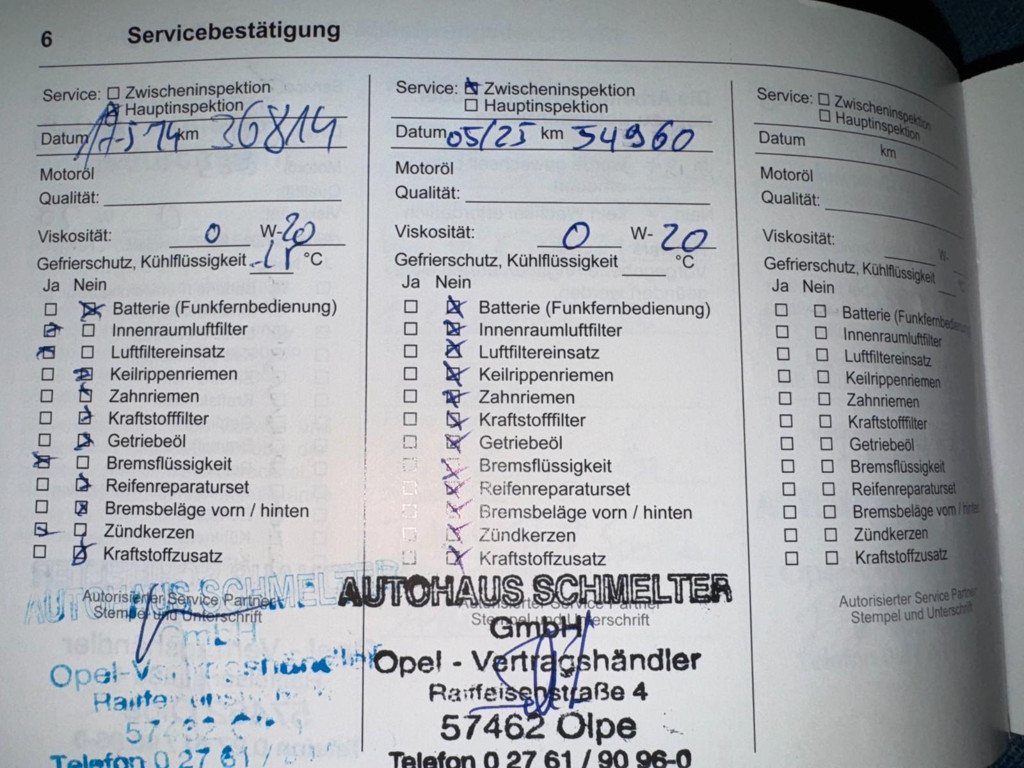 6 Servicebestätigung
Service: Zwischeninspektion
Hauptinspektion
Datum km 36814
Motoröl
Qualität:
Viskosität: 0 W-20
Gefrierschutz, Kühlflüssigkeit °C
Ja Nein
Batterie (Funkfernbedienung)
Innenraumluftfilter
Luftfiltereinsatz
Keilrippenriemen
Zahnriemen
Kraftstofffilter
Getriebeöl
Bremsflüssigkeit
Reifenreparaturset
Bremsbeläge vorn / hinten
Zündkerzen
Kraftstoffzusatz
AUTOHAUS SCHMELTER
Autorisierter Service Partner
Stempel und Unterschrift
GmbH
Opel-
57462
Telefon 0 27 61 /
Service: Zwischeninspektion
Hauptinspektion
Datum 05/25 km 54960
Motoröl
Qualität:
Viskosität: 0 W- 20
Gefrierschutz, Kühlflüssigkeit °C
Ja Nein
Batterie (Funkfernbedienung)
Innenraumluftfilter
Luftfiltereinsatz
Keilrippenriemen
Zahnriemen
Kraftstofffilter
Getriebeöl
Bremsflüssigkeit
Reifenreparaturset
Bremsbeläge vorn / hinten
Zündkerzen
Kraftstoffzusatz
AUTOHAUS SCHMELTER
Autorisierter Service Partner
Stempel und Unterschrift
GmbH
Opel - Vertragshändler
Raiffeisenstraße 4
57462 Olpe
Telefon 0 27 61 / 90 96-0
Service: Zwischeninspektion
Hauptinspektion
Datum km
Motoröl
Qualität:
Viskosität: W-
Gefrierschutz, Kühlflüssigkeit
Ja Nein
Batterie (Funkfernbedienung)
Innenraumluftfilter
Luftfiltereinsatz
Keilrippenriemen
Zahnriemen
Kraftstofffilter
Getriebeöl
Bremsflüssigkeit
Reifenreparaturset
Bremsbeläge vorn / hinten
Zündkerzen
Kraftstoffzusatz
Autorisierter Service Partner
Stempel und Unterschrift